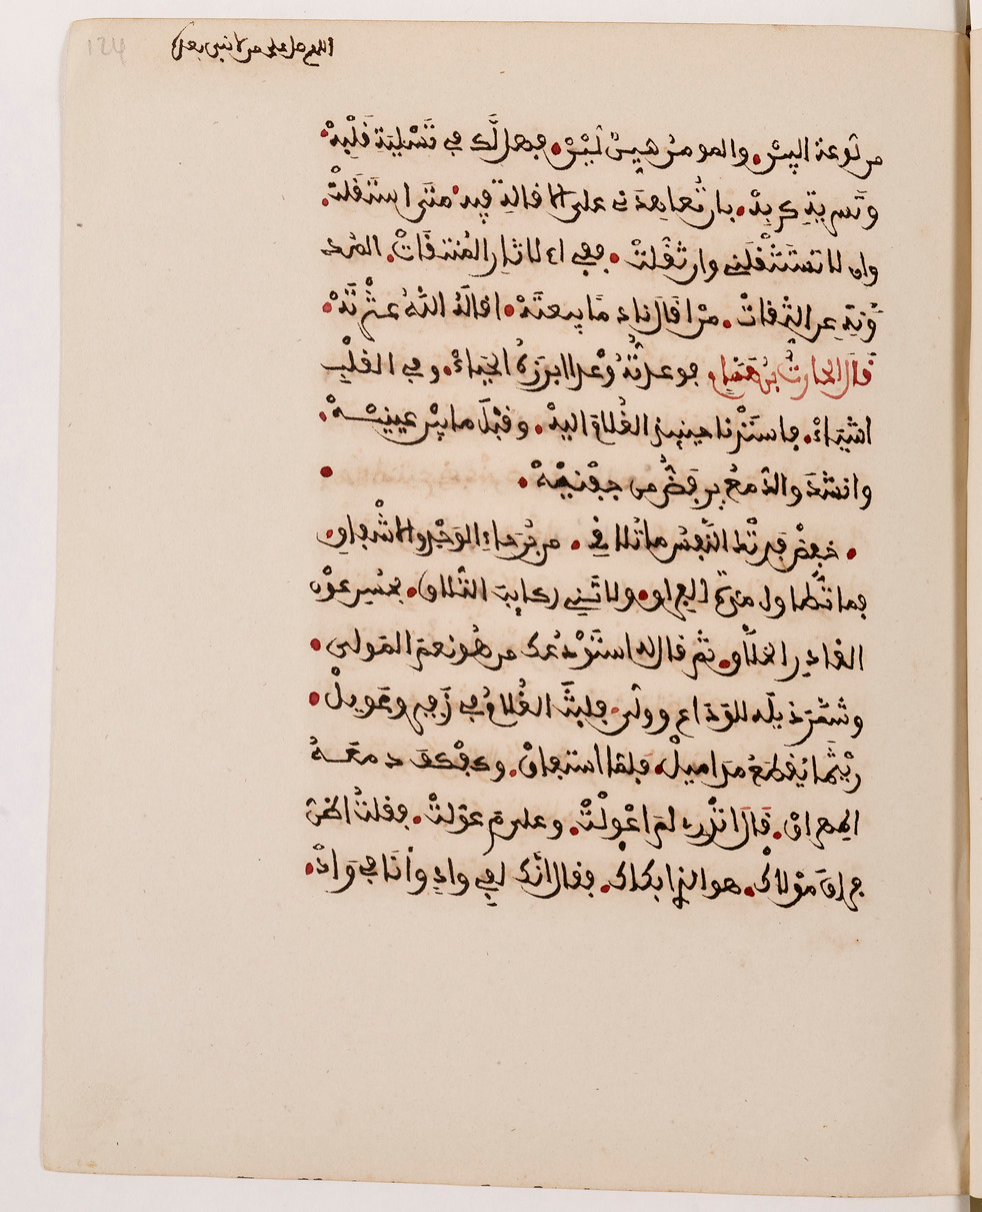 اللهم صل على من لا نبي بعده
124
من لوعة البيْن. والمومن هيِّنٌ ليِّنْ. فهل لَّك في تَسْلِيَةِ قَلْبِهْ.
وتَسْرِيةِ كربِهْ. بان تُعاهدَني على الاقالةِ فيه متى استَقلتْ.
وان لا تَسْتَثْقِلَني وان ثَقُلتْ. ففي الاثارِ المُنتقاتْ. المَرْوِ
وَّيَةِ عن الثِّقاتْ. مَنْ اقالَ نادِمًا بيعتَهْ. اقالَهُ اللهُ عَثْرتَهْ.
قال الحارثُ بنُ همّام. فوعدتُّهُ وَعْدا ابرَزهُ الحيَاءْ. وفي القلْبِ
اشْيَاءْ. فاستَدْنا حينيِذٍ الغُلامَ اليهْ. وقبَّلَ ما بيْن عينيْهْ.
وانشدَ والدَّمعُ يرفَضُّ من جفْنيْهْ.
خفِّضْ فدَتْكَ النَّفسُ ما تُلاقي. من بُرَحاءِ الوَجْدِ والاشْفاقِ.
فما تَطاولَ مدّةُ الفِراقِ. ولا تَنِي ركايبُ التَّلاقِ. بحُسنِ عونِ
القادرِ الخلّاقِ. ثم قال له استَوْدِعُك من هُو نعمَ المَوْلى.
وشمَّرَ ذيلَه للوَداع وولّى. فلبثَ الغُلامُ في زَفيرٍ وعويلْ.
ريْثَما يَقطعُ مدَا ميلْ. فلمّا استفاقْ. وكفْكفَ دمعَهُ
المُهراقْ. قالَ اتَدرِي لمَ اعْولْتْ. وعلى مَ عوّلتْ. فقلتُ اظنّ
فِراقَ موْلاكْ. هو الذي ابكاكْ. فقال انّك لفي وادٍ وأنَا في وَادْ.